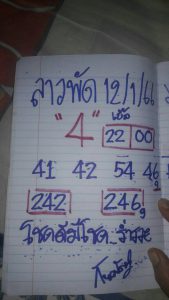 ลาวพัด 12/1/61
"4" เบิ้ล 22 00
41 42 54 46
242 246
โชคดีมีโชค..ร่ำรวย